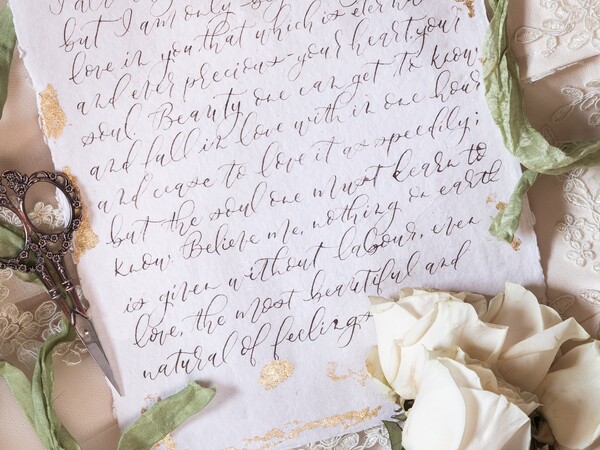 but I am only
love in you that which is eternal
and ever precious - your heart, your
soul. Beauty one can get to know
and fall in love with in one hour
and cease to love it as speedily;
but the soul one must learn to
know. Believe me, nothing on earth
is given without labour, even
love, the most beautiful and
natural of feelings